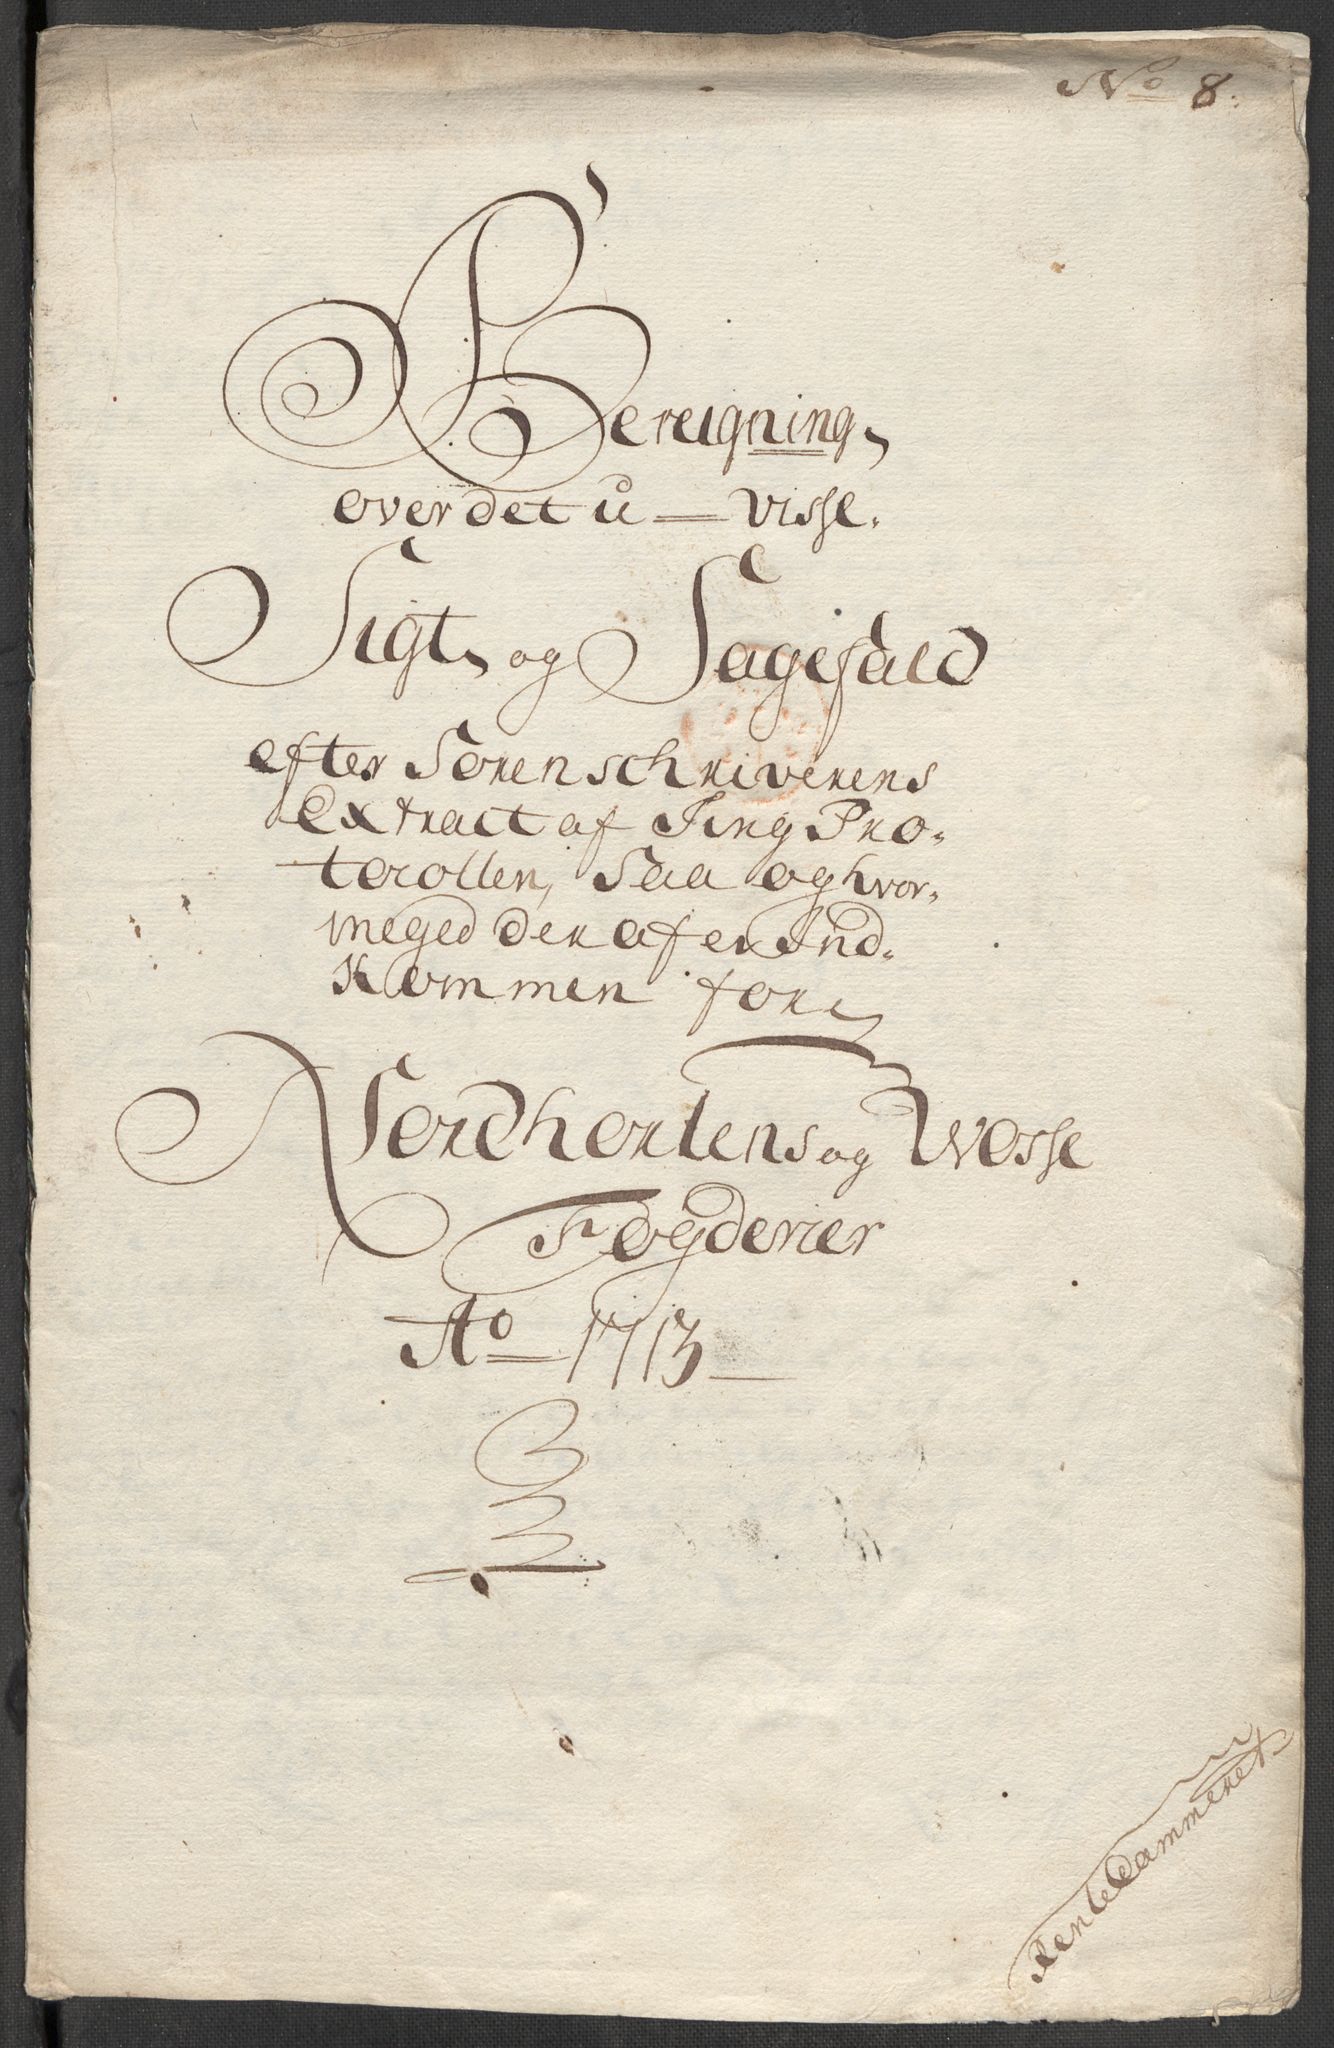 No 8.
Bereigning
over det u-visse
Sigt og Sagefald
efter Sorenschriverens
Extract af Ting Pro-
tocollen, Saa og hvor-
meged der af er Ind-
kommen for
Nordhorlens og Wosse
Fogderier
Ao 1713
RenteCammeret